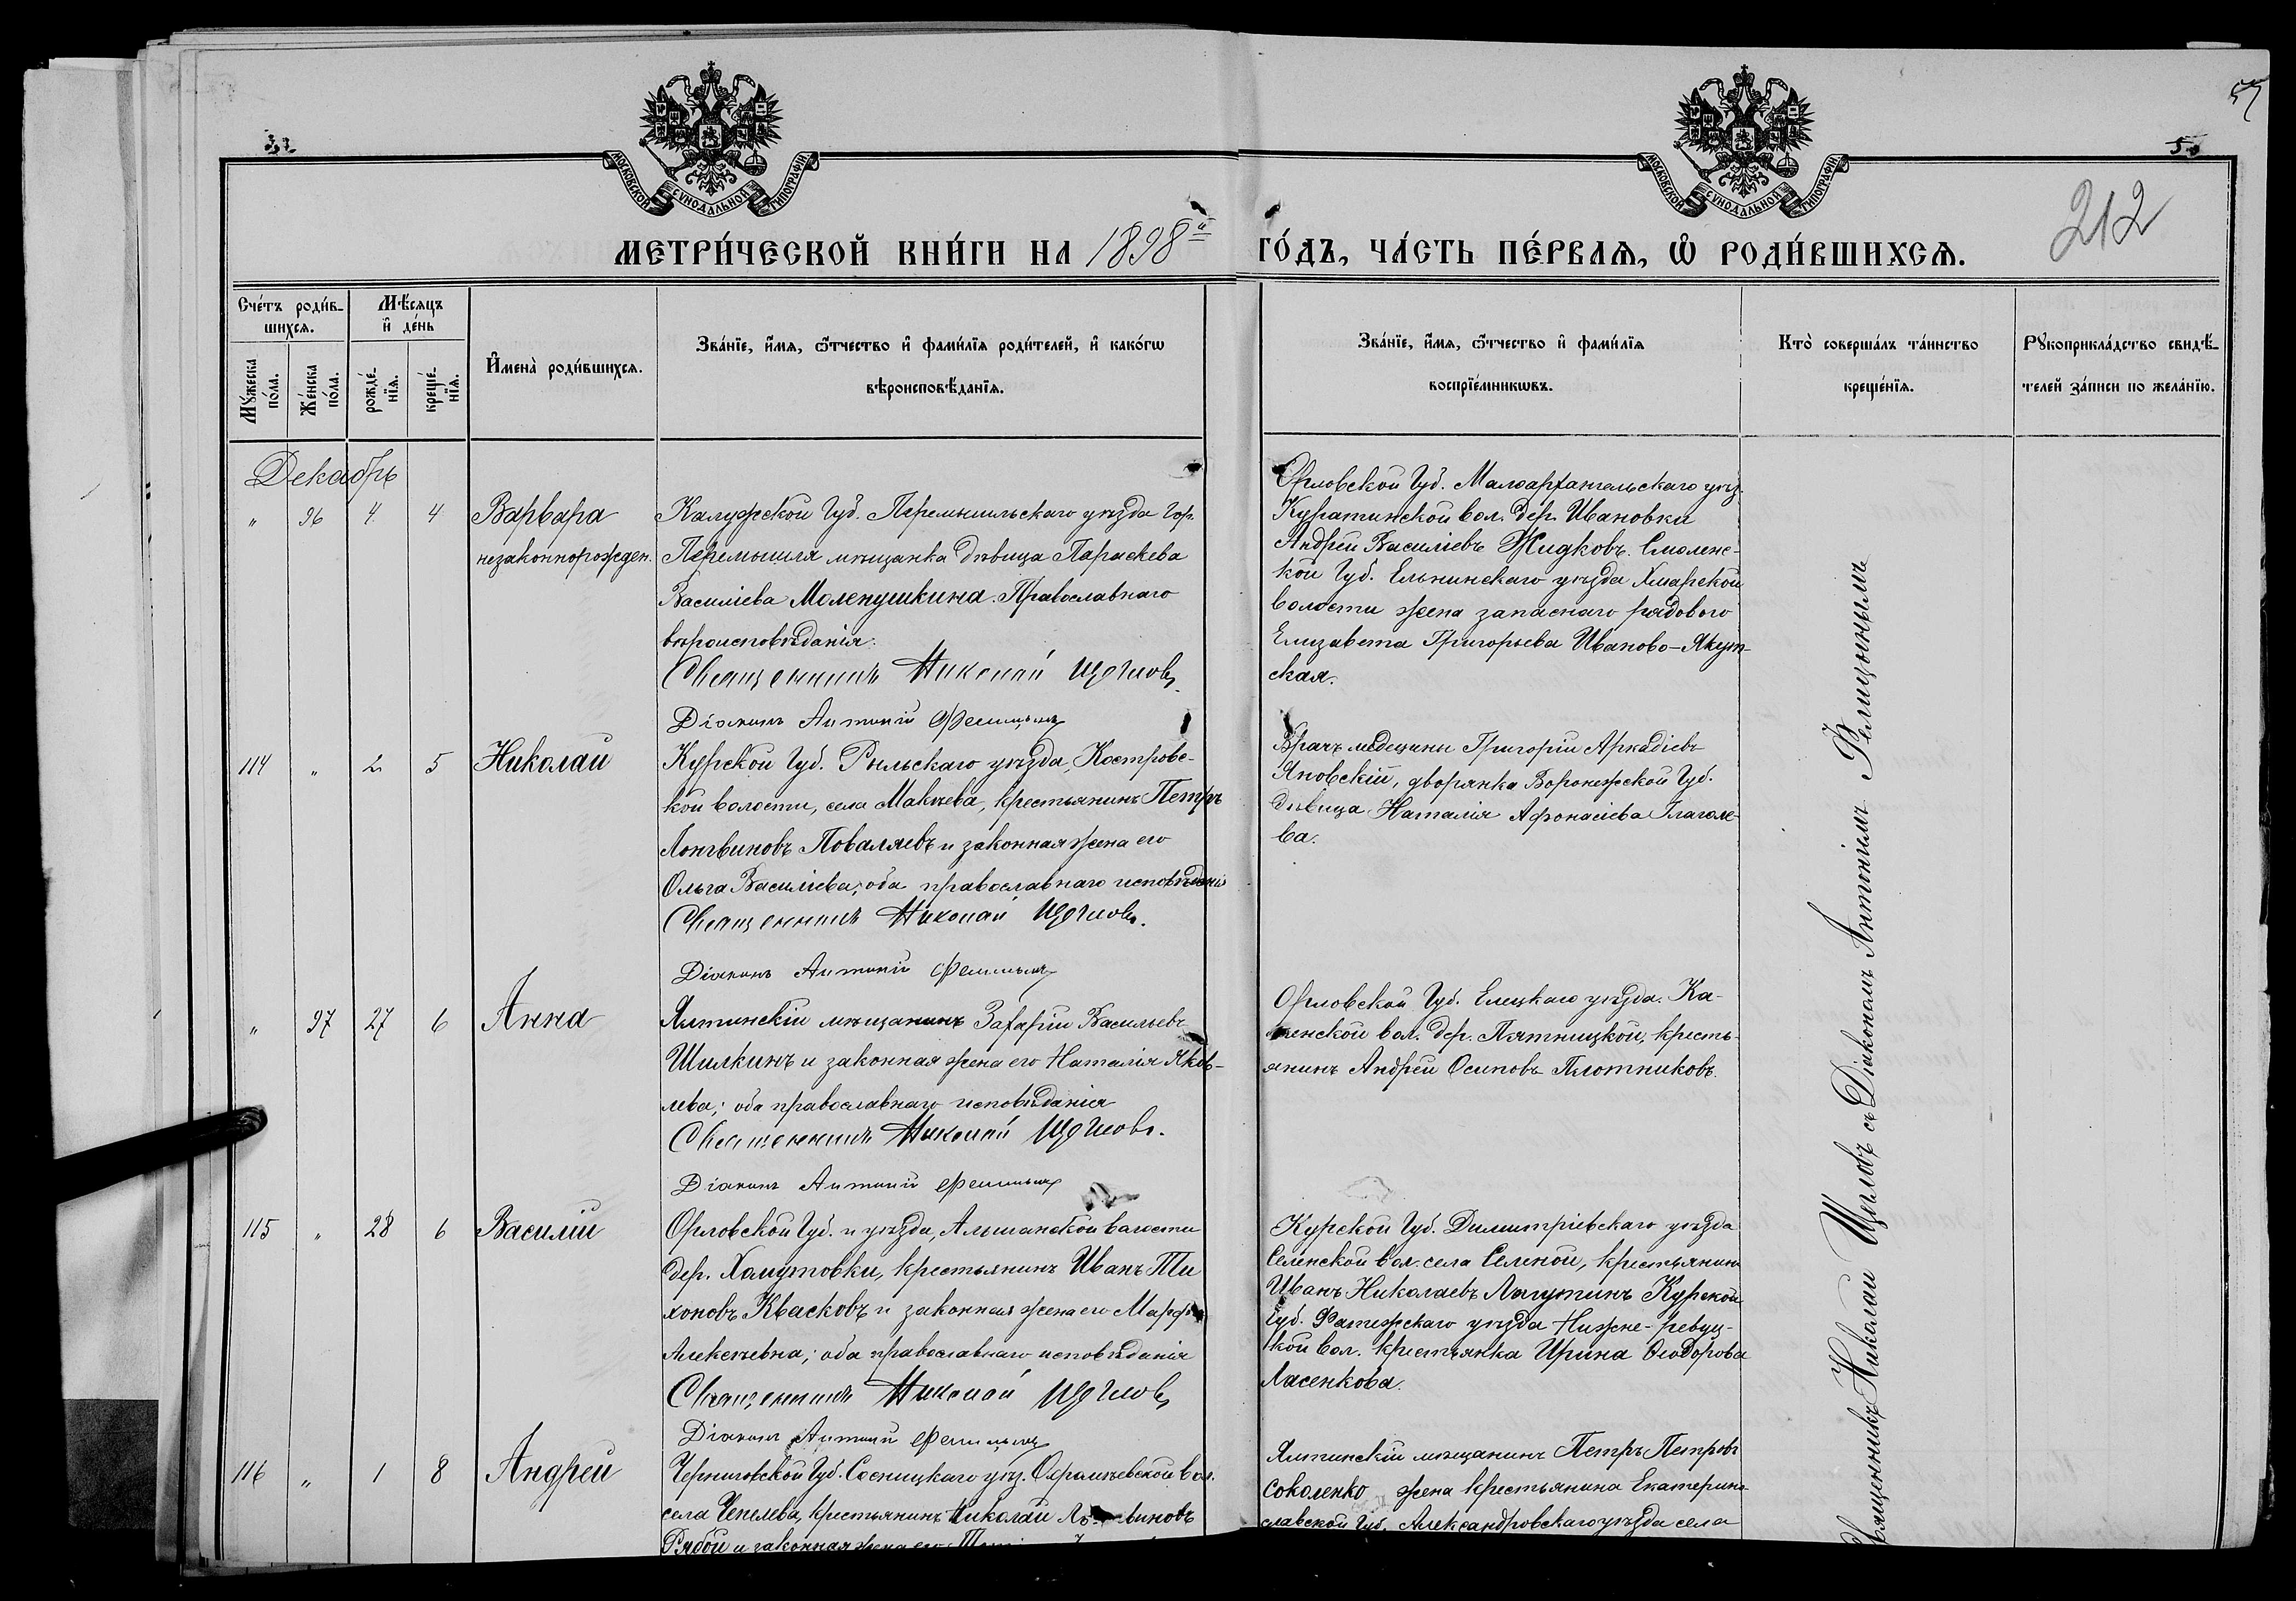 57
33
50
МОСКОВСКОЙ СУНОДАЛЬНОЙ ТИПОГРАФІИ
МОСКОВСКОЙ СУНОДАЛЬНОЙ ТИПОГРАФІИ
212
МЕТРИ́ЧЕСКОЙ КНИ́ГИ НА 1898й ГО́ДЪ, ЧА́СТЬ ПЕ́РВАѦ, Ѽ РОДИ́ВШИХСѦ.
Сче́тъ роди́в-
шихсѧ.
Мѣ́сѧцъ
и҆ де́нь
Мꙋ́жеска
по́ла.
Же́нска
по́ла.
рожде́-
нїѧ.
креще́-
нїѧ.
И҆мена̀ роди́вшихсѧ.
Зва́нїе, и҆́мѧ, ѻ҆́тчество и҆ фами́лїѧ роди́телей, и҆ како́гѡ
вѣроисповѣ́данїѧ.
Зва́нїе, и҆́мѧ, ѻ҆́тчество и҆ фами́лїѧ
воспрїе́мникѡвъ.
Кто̀ соверша́лъ та́инство
креще́нїѧ.
Рꙋкоприкла́дство свидѣ́-
телей за́писи по жела́нїю.
Декабрь
" 96 4 4 Варвара
незаконнорожден.
Калужской Губ. Перемышльскаго уѣзда Гор.
Перемышля мѣщанка дѣвица Параскева
Василіева Моленушкина. Православнаго
вѣроисповѣданія.
Священникъ Николай Щегловъ
Діаконъ Антоній Фелицынъ
Орловской Губ. Малоархангельскаго уѣз.
Куратинской вол. дер. Ивановки
Андрей Василіевъ Жидковъ. Смоленс-
кой Губ. Ельнинскаго уѣзда Хмарской
волости жена запаснаго рядового
Елизавета Григорьева Иваново-Якут-
ская.
114 " 2 5 Николай
Курской Губ. Рыльскаго уѣзда, Костровс-
кой волости, села Макѣева, крестьянинъ Петръ
Лонгвиновъ Поваляевъ и законная жена его
Ольга Василіева; оба православнаго исповѣданія
Священникъ Николай Щегловъ.
Діаконъ Антоній Фелицынъ
Врачъ медецины Григорій Аркадіевъ
Яновскій, дворянка Воронежской Губ.
дѣвица Наталія Афонасіева Глаголе-
ва.
" 97 27 6 Анна
Ялтинскій мѣщанинъ Захарій Васильевъ
Шилкинъ и законная жена его Наталія Яков-
лева; оба православнаго исповѣданія
Священникъ Николай Щегловъ.
Діаконъ Антоній Фелицынъ
Орловской Губ. Елецкаго уѣзда. Ка-
менской вол. дер. Пятницкой, кресть-
янинъ Андрей Осиповъ Плотниковъ.
115 " 28 6 Василій
Орловской Губ. и уѣзда, Альшанской волости
дер. Хомутовки, крестьянинъ Иванъ Ти
хоновъ Квасковъ и законная жена его Марфа
Алексѣевна; оба православнаго исповѣданія
Священникъ Николай Щегловъ
Діаконъ Антоній Фелицынъ
Курской Губ. Димитріевскаго уѣзда
Селенской вол. села Селиной, крестьянинъ
Иванъ Николаевъ Лагутинъ Курской
Губ. Фатежскаго уѣзда Нижне-ревуц-
кой вол. крестьянка Ирина Ѳеодорова
Ласенкова.
116 " 1 8 Андрей
Черниговской Губ. Сосницкаго уѣз. вол.
села Чепелева, крестьянинъ Николай
Рябой и законная жена его
Ялтинскій мѣщанинъ Петръ Петровъ
Соколенко жена крестьянина Екатерино
славской Губ. Александровскаго уѣзда села
Священникъ Николай Щегловъ съ Діакономъ Антоніемъ Фелицынымъ